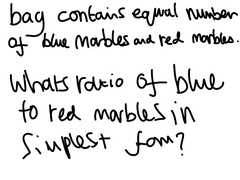 bag contains equal number
of blue marbles and red marbles.
Whats ratio of blue
to red marbles in
simplest form?